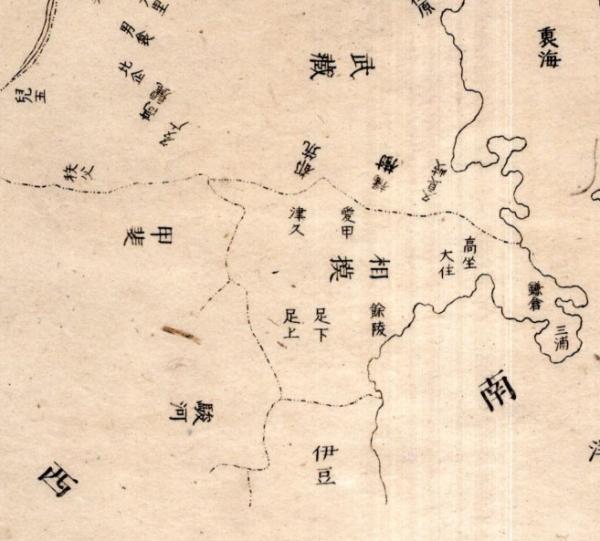 裏海
武蔵
男衾
比企
高麗
入間
兒玉
秩父
都筑
橘樹
久良岐
甲斐
津久
愛甲
相模
高坐
大住
鎌倉
三浦
足上
足下
餘陵
駿河
伊豆
南
西